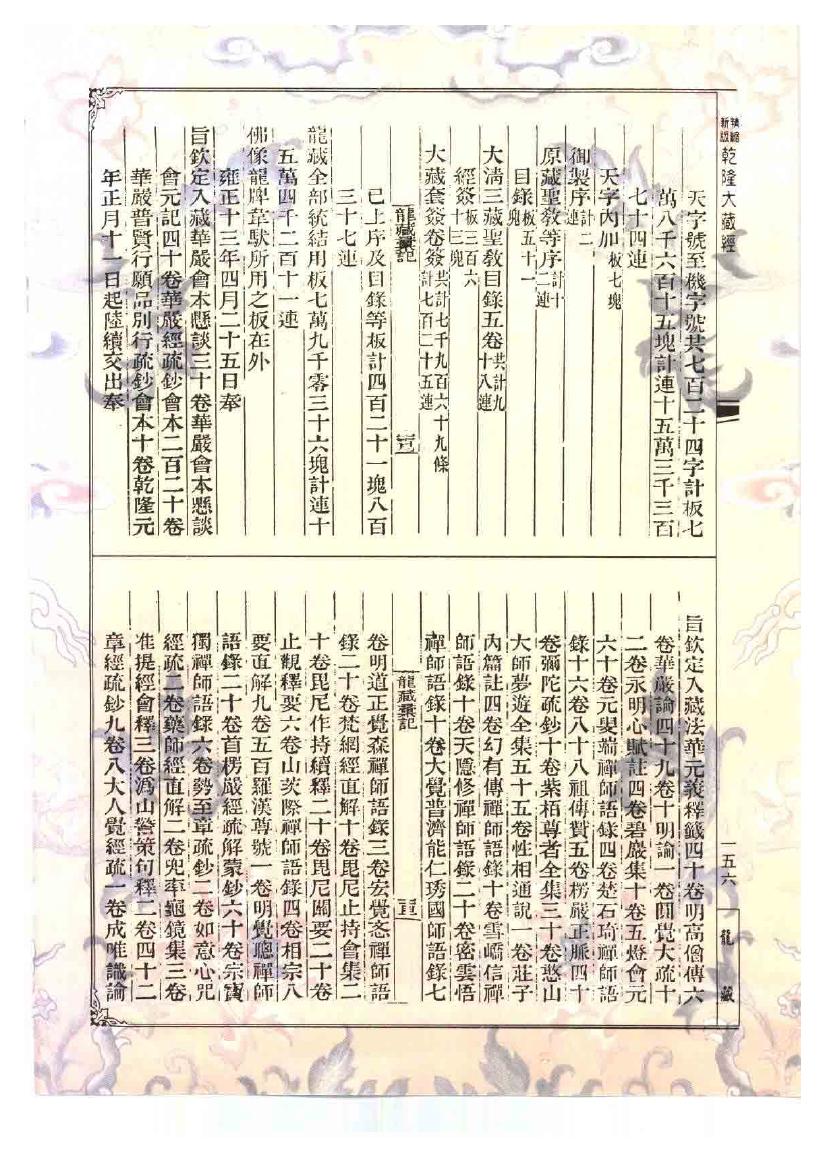 精縮新版乾隆大藏經
天字號至機字號共七百二十四字計板七
萬八千六百十五塊計連十五萬三千三百
七十四連
天字內加板七塊
御製序計二連
原藏聖敎等序計十二連
目錄板五十一塊
大淸三藏聖敎目錄五卷共計九十八連
經簽板三百六十三塊
大藏套簽卷簽共計七千九百六十九條計七百二十五連
龍藏彙記
已上序及目錄等板計四百二十一塊八百
三十七連
龍藏全部統結用板七萬九千零三十六塊計連十
五萬四千二百十一連
佛像龍牌韋馱所用之板在外
雍正十三年四月二十五日奉
旨欽定入藏華嚴會本懸談三十卷華嚴會本懸談
會元記四十卷華嚴經疏鈔會本二百二十卷
華嚴普賢行願品別行疏鈔會本十卷乾隆元
年正月十一日起陸續交出奉
旨欽定入藏法華元義釋籤四十卷明高僧傳六
卷華嚴論四十九卷十明論一卷圓覺大疏十
二卷永明心賦註四卷碧巖集十卷五燈會元
六十卷元叟端禪師語錄四卷楚石琦禪師語
錄十六卷八十八祖傳贊五卷楞嚴正脈四十
卷彌陀疏鈔十卷紫栢尊者全集三十卷憨山
大師夢遊全集五十五卷性相通說一卷莊子
內篇註四卷幻有傳禪師語錄十卷雪嶠信禪
師語錄十卷天隱修禪師語錄二十卷密雲悟
禪師語錄十卷大覺普濟能仁琇國師語錄七
龍藏彙記
卷明道正覺森禪師語錄三卷宏覺忞禪師語
錄二十卷梵網經直解十卷毘尼止持會集二
十卷毘尼作持續釋二十卷毘尼關要二十卷
止觀釋要六卷山茨際禪師語錄四卷相宗八
要直解九卷五百羅漢尊號一卷明覺聰禪師
語錄二十卷首楞嚴經疏解蒙鈔六十卷宗寶
獨禪師語錄六卷勢至章疏鈔二卷如意心咒
經疏二卷藥師經直解二卷兜率龜鏡集三卷
准提經會釋三卷溈山警策句釋二卷四十二
章經疏鈔九卷八大人覺經疏一卷成唯識論
一五六
龍藏